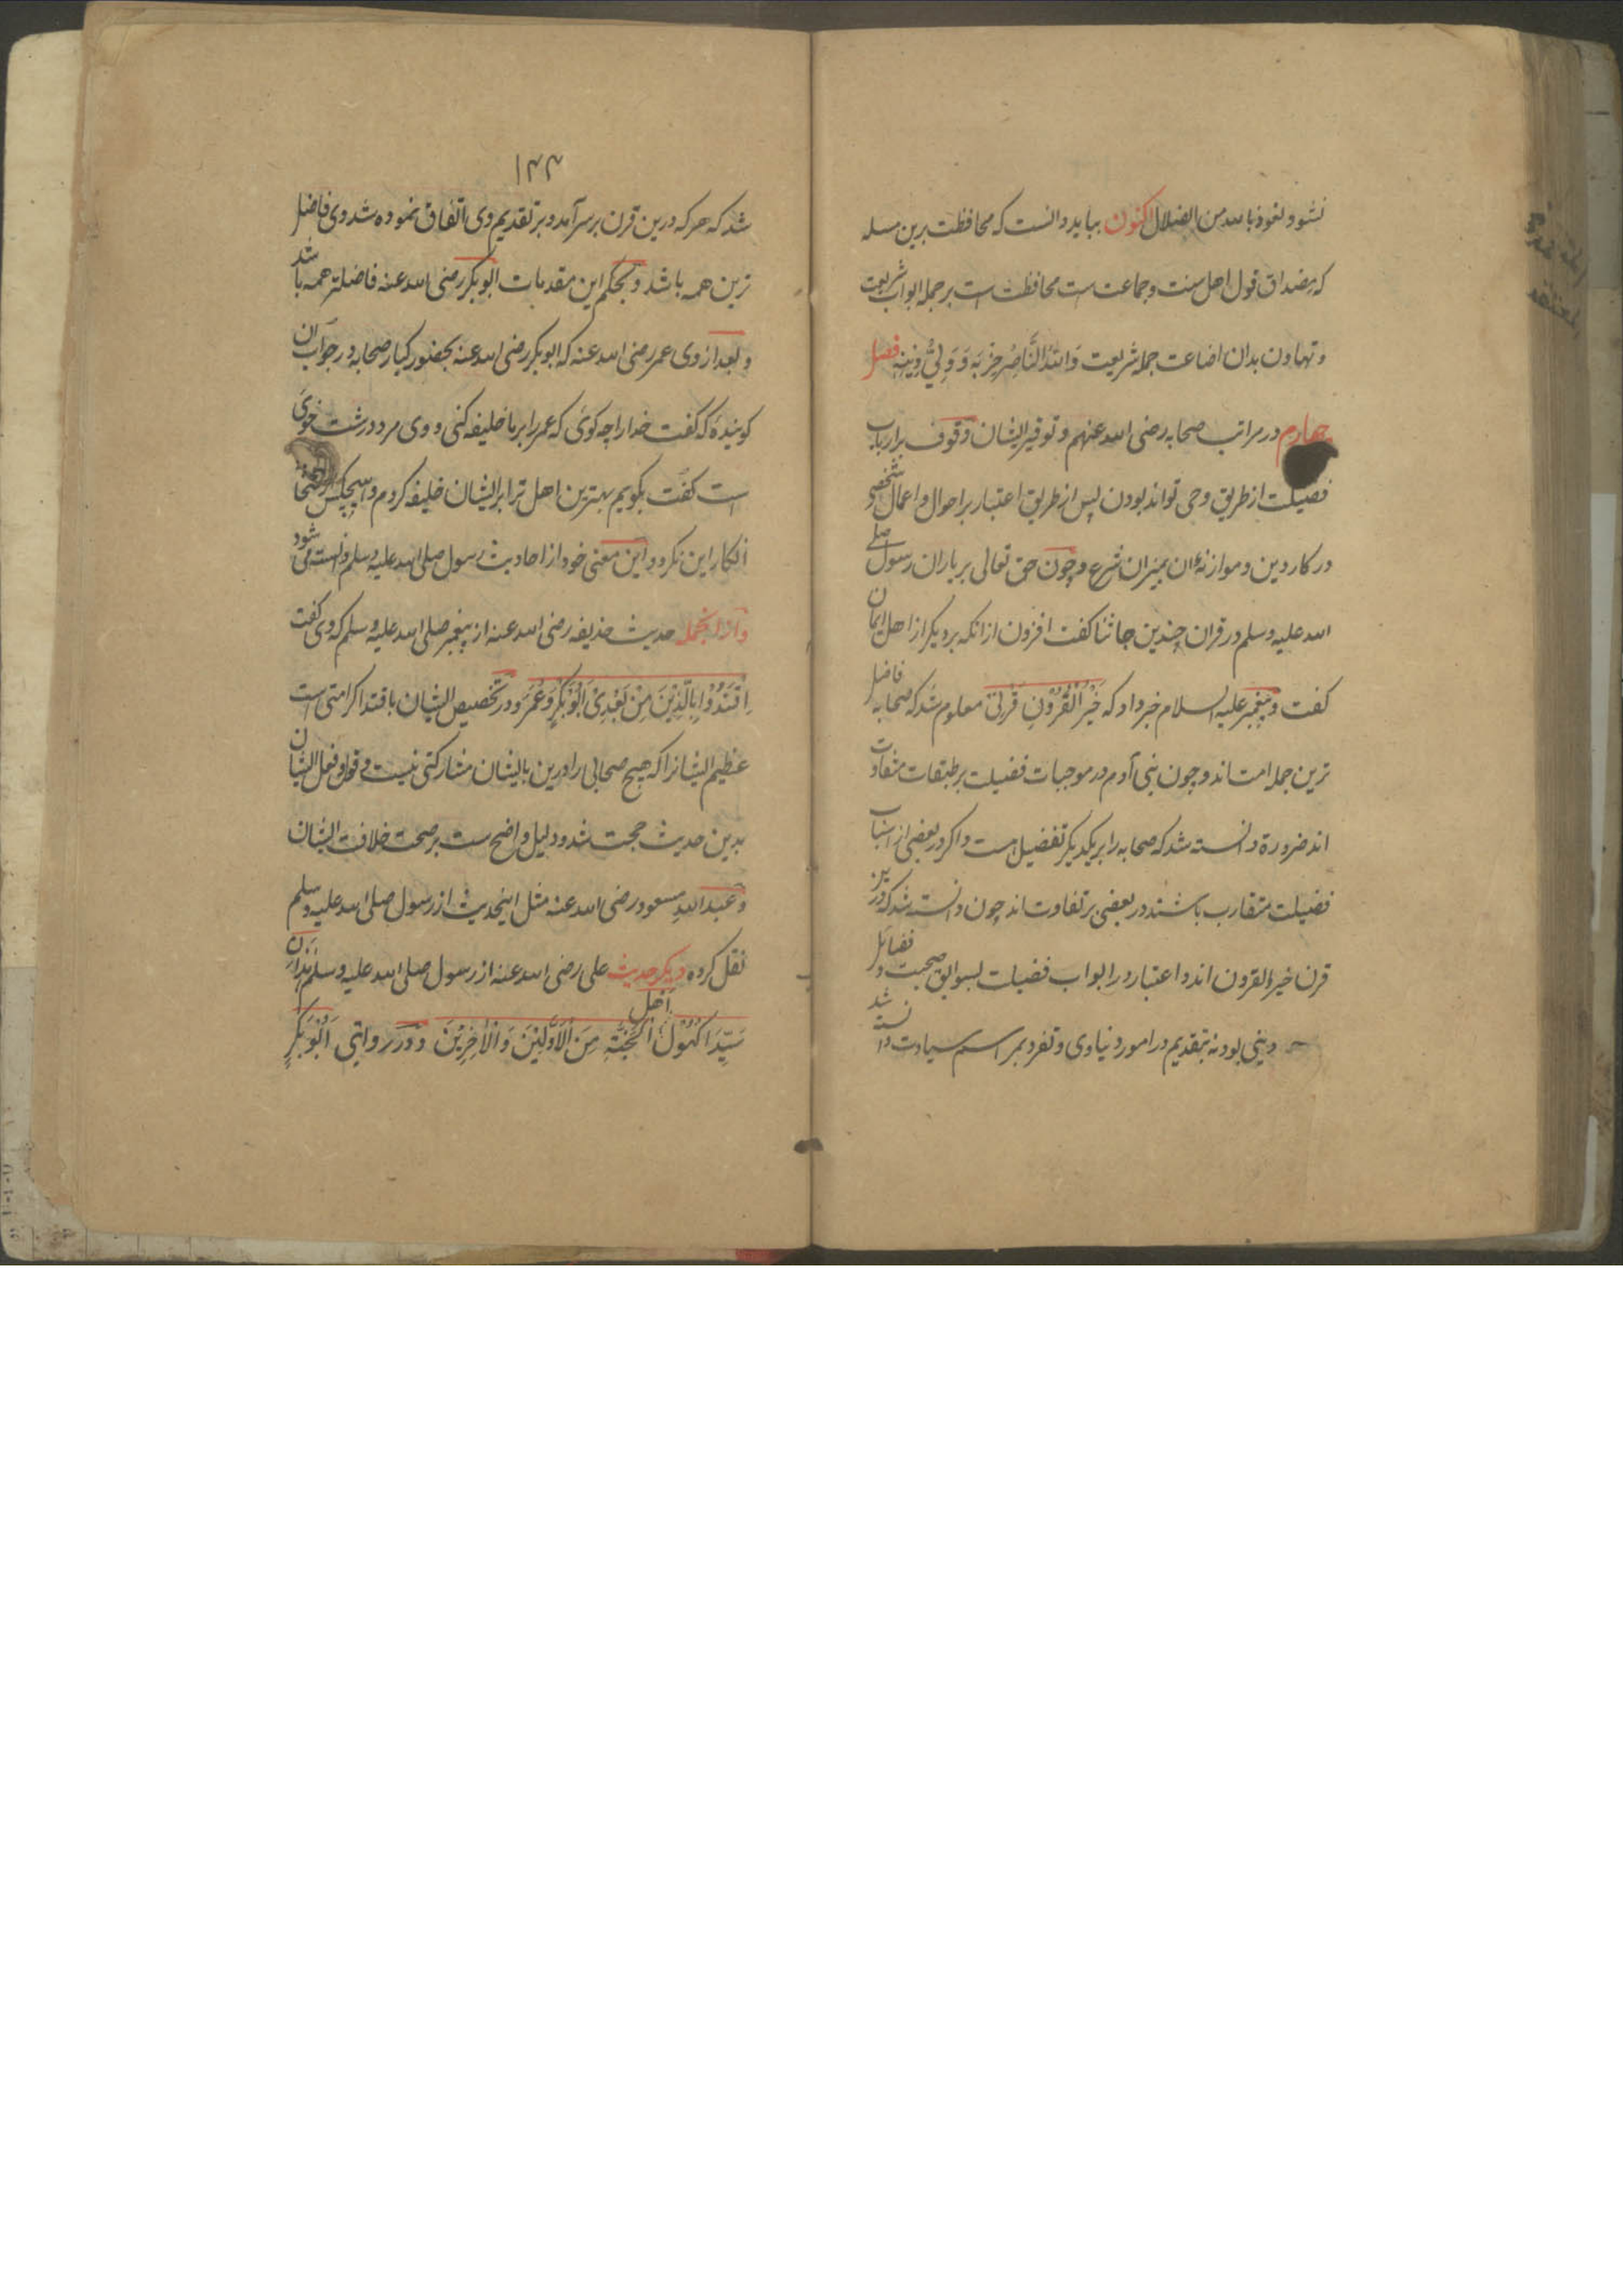 نشود و نعوذ بالله من الضلال اکنون بباید دانست که محافظت برین مسله
که مصداق قول اهل سنت و جماعت ست محافظت است بر جمله ابواب شریعت
و تهاون بدان اضاعت جمله شریعت وَاللّٰهُ النَّاصِرُ حِزْبَه وَ وَلِیُّ دِیْنِه فصل
چهارم در مراتب صحابه رضی الله عنهم و توقیر ایشان وقوف بر ارباب
فضیلت از طریق وحی تواند بودن پس از طریق اعتبار بر احوال و اعمال شخصی
در کار دین و موازنهٔ ان بمیزان شرع و چون حق تعالی بر یاران رسول صلی
الله علیه وسلم در قران چندین جا ثنا کفت افزون از انکه بر دیکر از اهل ایمان
کفت و پیغمبر علیه السلام خبر داد که خَیْرُ الْقُرُوْنِ قَرْنِیْ معلوم شد که صحابه فاضل
ترین جمله امت اند و چون بنی آدم در موجبات فضیلت بر طبقات متفاوت
اند ضرورة دانسته شد که صحابه را بر یکدیکر تفضیل است و اکر در بعضی از اسباب
فضیلت متقارب باشند در بعضی بر تفاوت اند چون دانسته شد که درین
قرن خیر القرون اند و اعتبار در ابواب فضیلت بسوابق صحبت و فضائل
دینی بود نه بتقدیم در امور دنیاوی و تفرد بمراسم سیادت دانسته شد
۱۴۴
شد که هر که درین قرن بر سر آمد و بر تقدیم وی اتفاق نموده شد وی فاضل
ترین همه باشد و بحکم این مقدمات ابوبکر رضی الله عنه فاضلتر همه باشد
و بعد از وی عمر رضی الله عنه که ابوبکر رضی الله عنه بحضور کبار صحابه در جواب آن
کوینده که کفت خدا را چه کوئی که عمر را بر ما خلیفه کنی و وی مرد درشت خوی
است کفت بکویم بهترین اهل ترا بر ایشان خلیفه کردم و هیچکس از صحابه
انکار این نکرد و این معنی خود از احادیث رسول صلی الله علیه وسلم دانسته می شود
و از انجمله حدیث حذیفه رضی الله عنه از پیغمبر صلی الله علیه وسلم که وی کفت
اِقْتَدُوْا بِالَّذَیْنَ مِنْ بَعْدِیْ اَبُوْبَکْرٍ وَ عُمَرَ و در تخصیص ایشان باقتدا کرامتی است
عظیم ایشانرا که هیچ صحابی را درین با ایشان مشارکتی نیست و قول و فعل ایشان
بدین حدیث حجت شد و دلیل واضح ست بر صحت خلافت ایشان
و عبد الله مسعود رضی الله عنه مثل اینحدیث از رسول صلی الله علیه وسلم
نقل کرده دیکر حدیث علی رضی الله عنه از رسول صلی الله علیه وسلم هٰذَانِ
سَیِّدَا کُهُوْلِ اَهْلِ الْجَنَّةِ مِنَ الْاَوَّلِیْنَ وَ الْاٰخِرِیْنَ و در روایتی اَبُوْبَکْرٍ